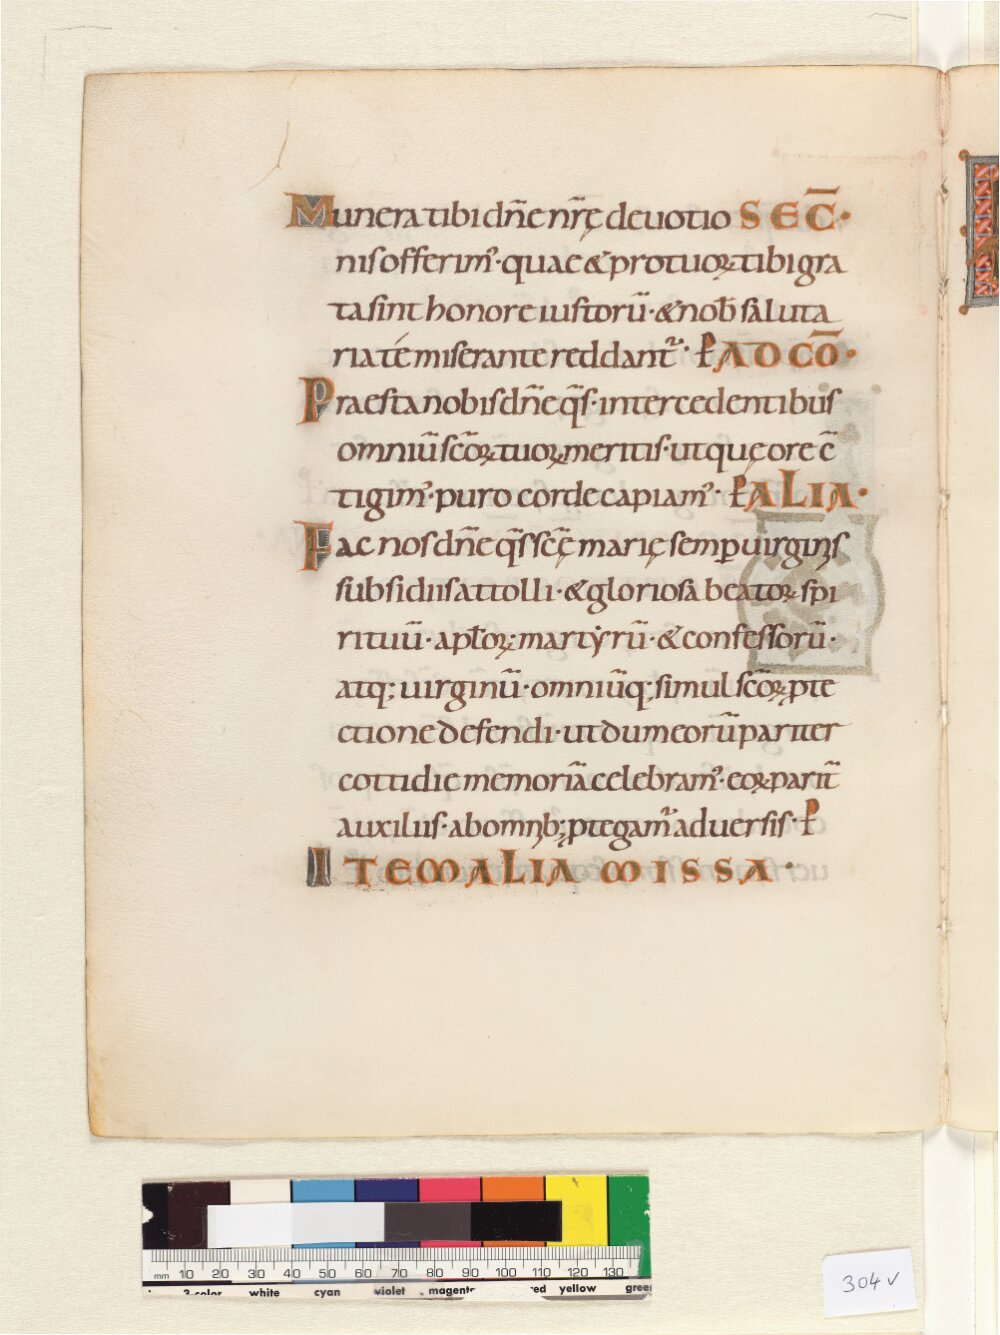 Munera tibi dn̄e nr̄ę deuotio SEC̄·
nis offerim᾿· quae & pro tuoꝝ tibi gra
ta sint honore iustorū· & nob̄ saluta
ria té miserante reddant᷑· P AD CŌ·
Praesta nobis dn̄e qs̄· intercedentibus
omniū sc̄oꝝ tuoꝝ meritis· ut quę ore c̄
tigim᾿· puro corde capiam᾿· P ALIA·
Fac nos dn̄e qs̄ sc̄ę marię semp̄ uirginis
subsidiis attolli· & gloriosa beatoꝝ spi
rituū· apl̄oꝝ· martẏrū· & confessorū·
atq; uirginū· omniūq; simul sc̄oꝝ ꝓte
ctione defendi· ut dum eorū pariter
cottidie memoriā celebram᾿· eoꝝ parit̄
auxiliis· ab omnib; ꝓtegam᷑ aduersis· P
ITEM ALIA MISSA·
mm 10 20 30 40 50 60 70 80 90 100 110 120 130
3-color white cyan violet magenta red yellow green
304 v